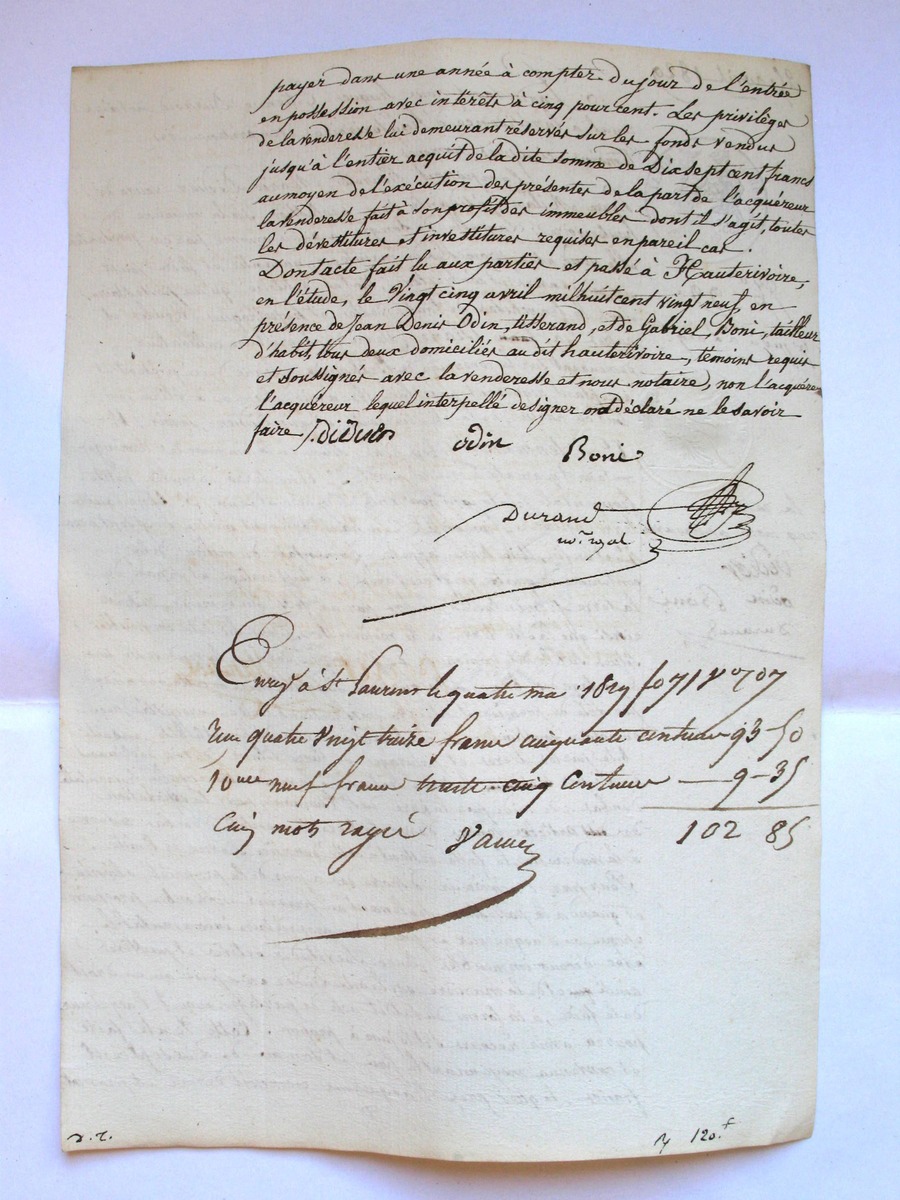 payer dans une année à compter du jour de l'entrée
en possession avec intérêts à cinq pour cent. Les privilèges
de la venderesse lui demeurant réservés sur les fonds vendus
jusqu'à l'entier acquit de la dite somme de Dix sept cent francs
au moyen de l'exécution des présentes de la part de l'acquéreur
la venderesse fait à son profit des immeubles dont il s'agit, toutes
les dévestitures et investitures requises en pareil cas.
Dont acte fait lu aux parties et passé à Hauterivoire,
en l'étude, le Vingt cinq avril mil huit cent vingt neuf, en
présence de Jean Denis Odin, tisserand, et de Gabriel Boni, tailleur
d'habit, tous deux domiciliés au dit hauterivoire, témoins requis
et soussignés avec la venderesse et nous notaire, non l'acquéreur
l'acquéreur lequel interpellé de signer a déclaré ne le savoir
faire
odin Boni
Durand
no.re royal
Enreg.é à St Laurent le quatre mai 1829 fo 71 Vo
quatre vingt treize francs cinquante centimes 93-50
10eme neuf francs trente cinq Centimes — 9-35
Cinq mots rayés 102 85
120.f